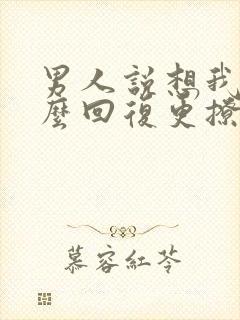 男人説想我
麼回復更撩
慕容紅苓